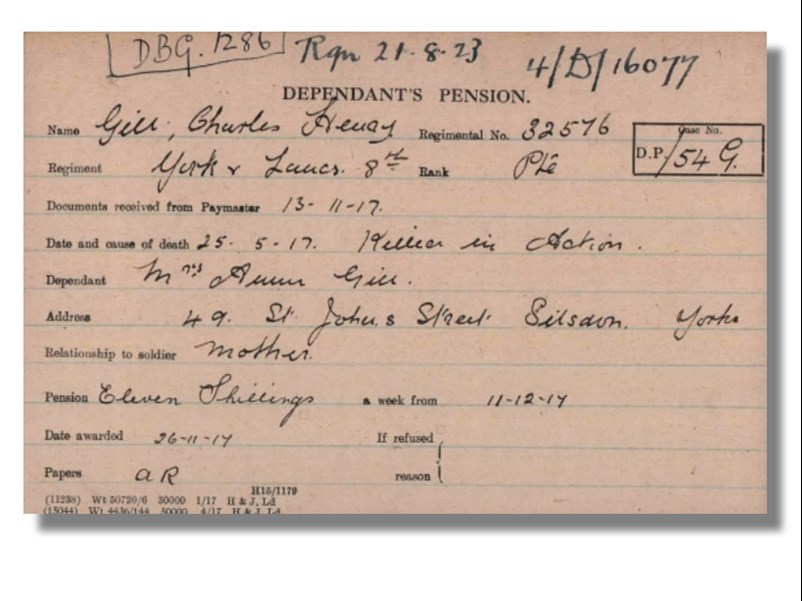 DBG. 1286 Rqn 21.8.23 4/D/16077
DEPENDANT'S PENSION.
Name Gill, Charles Henry Regimental No. 32576 Case No.
Regiment York & Lancs. 8th Rank Pte D.P./54 G.
Documents received from Paymaster 13-11-17.
Date and cause of death 25-5-17. Killed in Action.
Dependant Mrs Ann Gill.
Address 49. St. John's Street Silsdon. Yorks
Relationship to soldier Mother.
Pension Eleven Shillings a week from 11-12-17
Date awarded 26-11-17 If refused
Papers a R reason
H15/1179
(11238) Wt 50720/6 30000 1/17 H & J, Ld
(15044) Wt 4436/144 50000 4/17 H & J, Ld